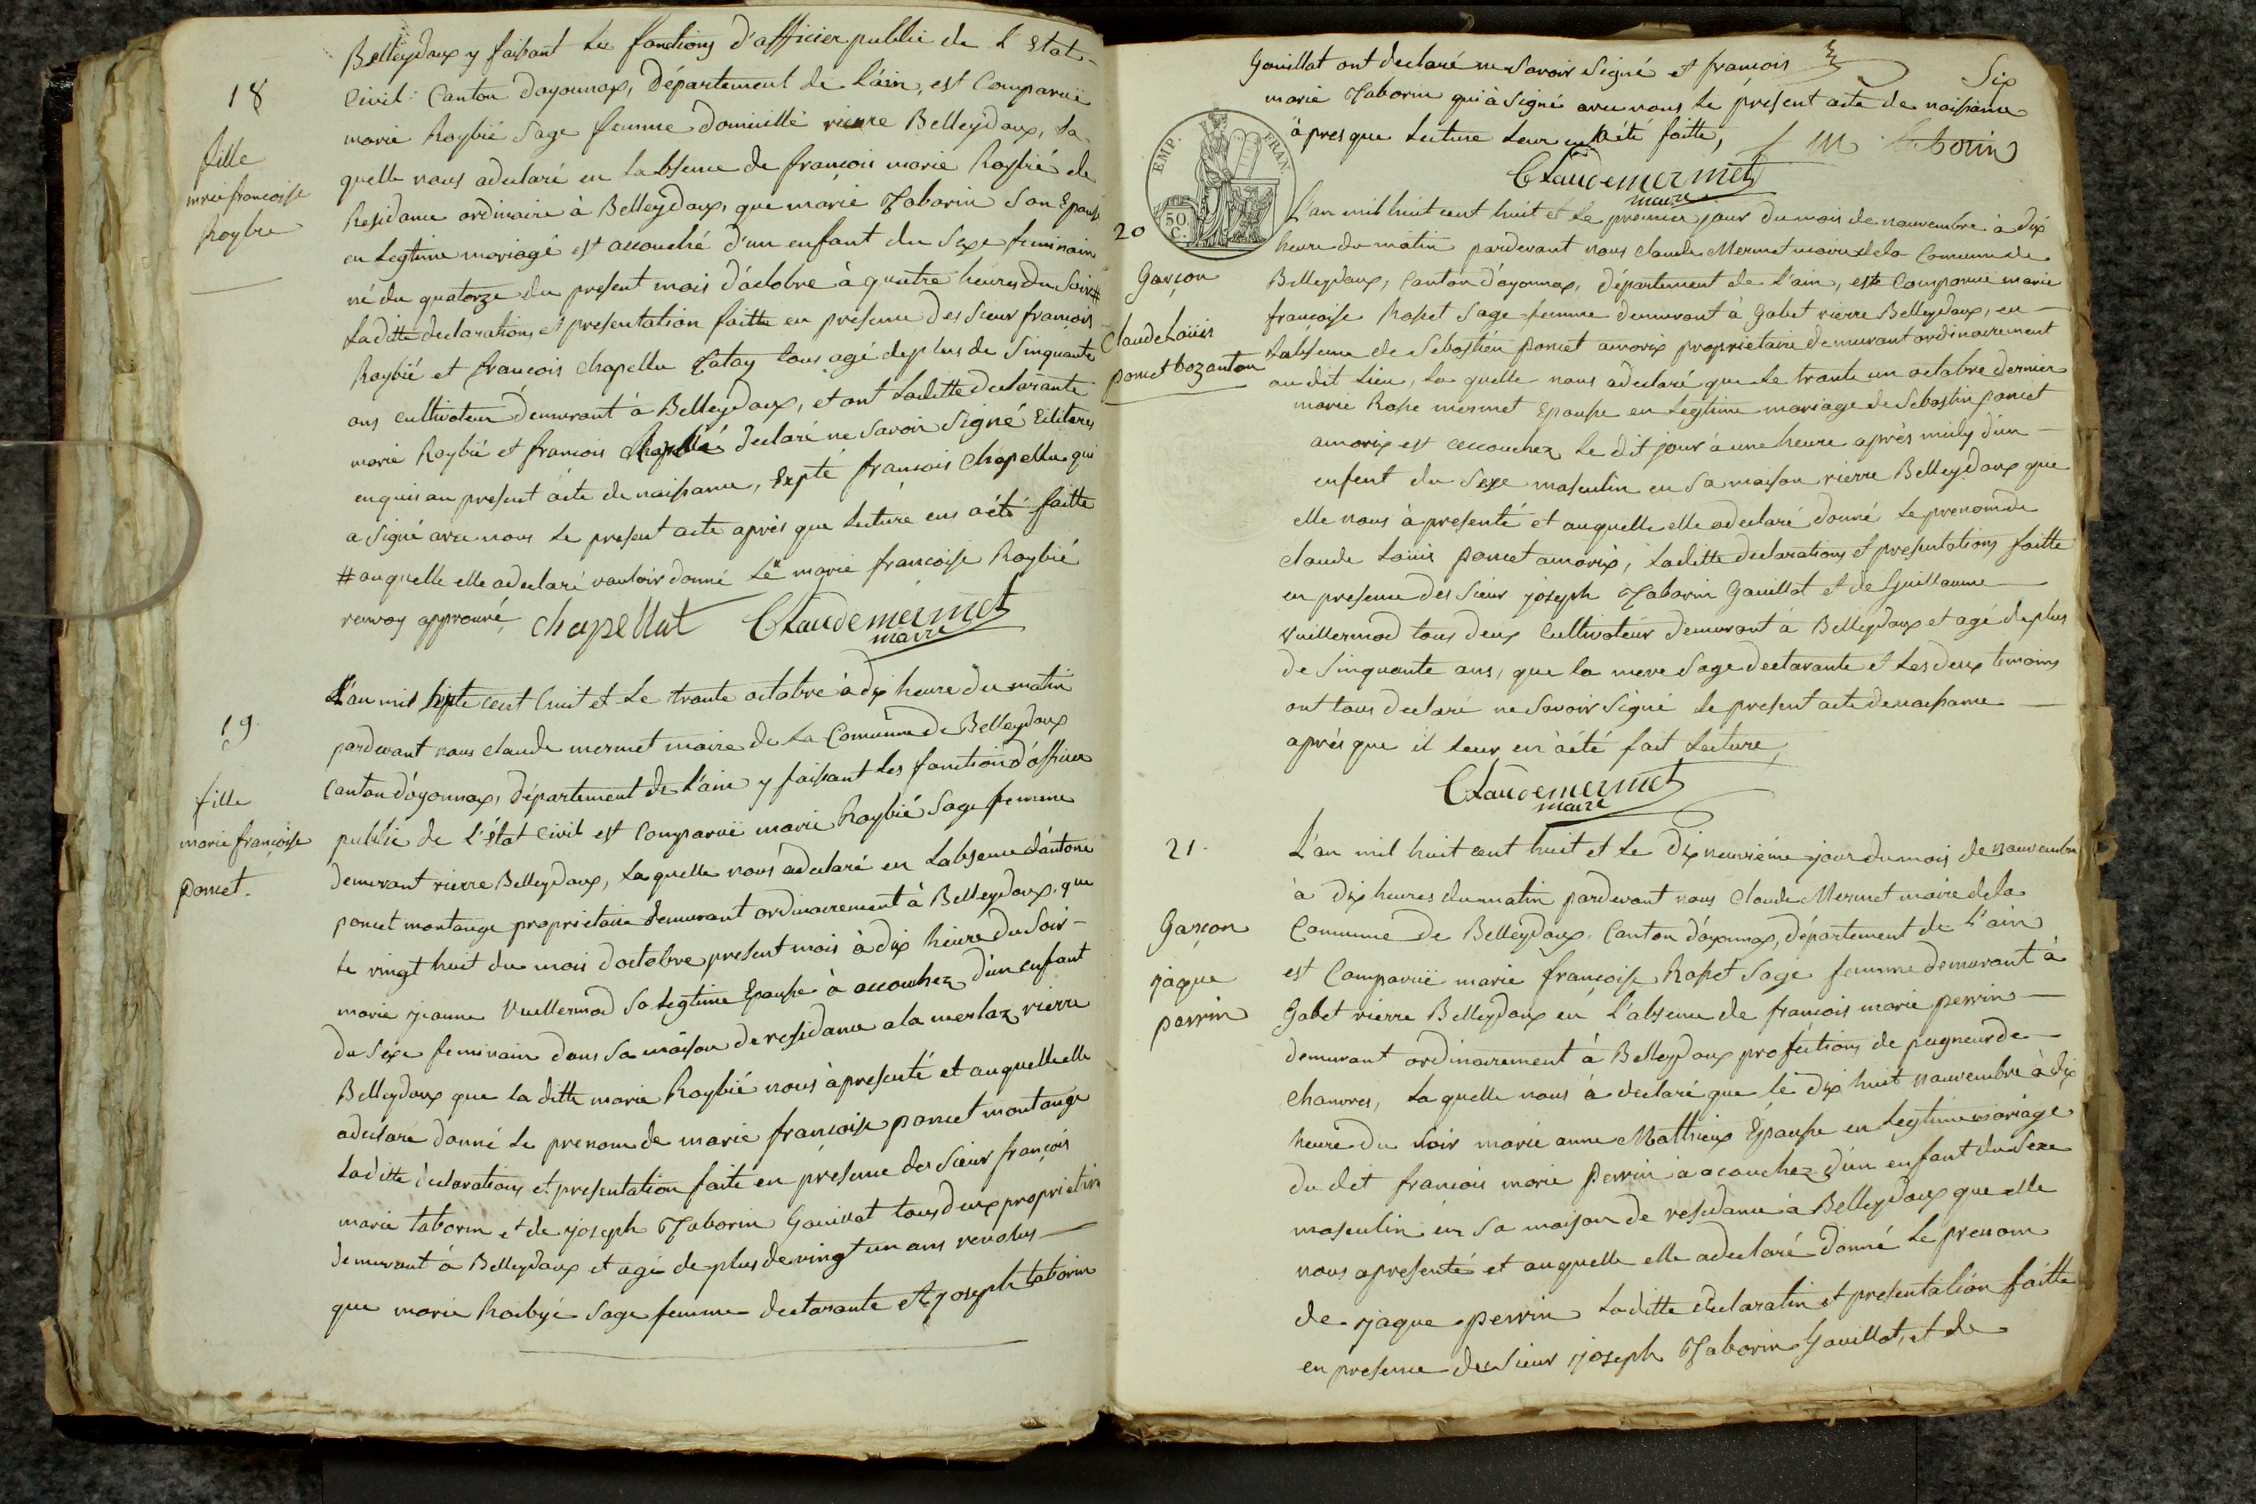 Belleydoux y faisant les fonctions d'afficier public de L'etat
Civil: Canton d'ayonnax, Département de L'ain, est Comparuë
marie Roybié Sage femme Domicillié rierre Belleydoux, La
quelle nous adeclaré en Labsence de francois marie Roybié de
Residance ordinaire à Belleydoux, que marie Taborin Son Epouse
en Legtime mariage est accouché d'un enfant du Sexe feminain
né du quatorze du present mois d'actobre à quatre heures du Soir #
Laditte declarations et presentation faitte en presence des Sieur francois
Roybié et francois Chapellu Catay tous agé deplus de Sinquante
ans cultivateur demurant à Belleydoux, et ont Laditte declarante
marie Roybié et francois Chapellu declaré ne Savoir Signé
enquis au present acte de naissance, Expté francois Chapellu qui
a Signé avec nous Le present acte après que Lecture eus aété faitte
# auquelle elle adeclaré vouloir donné Le marie francoise Roybié
renvoy approuvé, Chapellut Claude mermet
maire
18
fille
marie francoise
Roybie
L'an mil huit cent huit et Le trante octobre à dix heure du matin
pardevant nous claude mermet maire de La Comune de Belleydoux
Canton d'ayonnax, Département de L'ain y faissant Les fonction d'officier
public de L'état Civil est Comparuë marie Roybié Sage femme
demurant rierre Belleydoux, Laquelle nous adeclaré en Labsence d'antoine
poncet montange proprietaire demurant ordinairement à Belleydoux que
Le vingt huit du mois d'octobre present mois à dix heure du Soir
marie jeanne Vuellermod Sa Legtime Epouse à accouchez d'un enfant
du Sexe feminain dans Sa maison de residance a la merlaz rierre
Belleydoux que la ditte marie Roybié nous à presenté et auquelle elle
adeclaré donné Le prenom de marie francoise poncet montange
Laditte declarations et presentation faite en presence des Sieur françois
marie taborin et de joseph Taborin Gouillat tous deux proprietaire
demurant à Belleydoux et agé de plus de vingt un ans revolus
que marie Roibyé Sage femme declarante et joseph taborin
19.
fille
marie françoise
poncet.
Gouillat ont declaré ne Savoir Signé et francois
Six
marie Taborin qui à Signé avec nous Le present acte de naissance
après que Lecture Leur en aété faitte,
f m taborin
Claude mermet
maire
EMP. FRAN.
50
C.
20
Garçon
Claude Louis
poncet bozanton
L'an mil huit cent huit et Le premier jour du mois de nouvembre à dix
heure du matin pardevant nous claude Mermet maire dela Comune de
Belleydoux, Canton d'ayonnax, département de L'ain, este Comparuë marie
francoise Rosset Sage femme demurant à Gobet rierre Belleydoux, en
Labsence de Sebastien poncet amorix proprietaire demurant ordinairement
au dit Lieu, La quelle nous adeclaré que Le trante un octobre dernier
marie Rose mermet Epouse en Legtime mariage de Sebastien poncet
amorix est accouchez Le dit jour à une heure après midy d'un
enfent du Sexe masculin en Sa maison rierre Belleydoux que
elle nous à presenté et auquelle elle adeclaré donné Le prenom de
claude Louis poncet amorix, Laditte declarations et presentations faitte
en presence des Sieur joseph Taborin Gouillat et de Guillaume
Vuillermod tous deux Cultivateur demurant à Belleydoux et agé deplus
de Sinquante ans, que la mere Sage declarante et Les deux temoins
ont tous declaré ne Savoir Signé Le present acte de naissance
après que il Leur en aété fait Lecture,
Claude mermet
maire
21.
Garçon
jaque
perrin
L'an mil huit cent huit et Le dix neuvieme jour du mois de nouvembre
à dix heures du matin pardevant nous Claude Mermet maire dela
Comune de Belleydoux Canton d'ayonnax, département de L'ain
est Comparuë marie françoise Rosset Sage femme demurant à
Gobet rierre Belleydoux en L'absence de francois marie perrin
demurant ordinairement à Belleydoux profections de pugneur de
chanvres, La quelle nous à declaré que Le dix huit nouvembre à dix
heure du Soir marie anne Mathieux Epouse en Legtime mariage
du dit francois marie Perrin à acouchez d'un enfant du Sexe
masculin en Sa maison de residance à Belleydoux que elle
nous apresenté et auquelle elle adeclaré donné Le prenom
de jaque perrin Laditte declaratin et presentation faitte
en presence des Sieur joseph Taborin Gouillat, et de